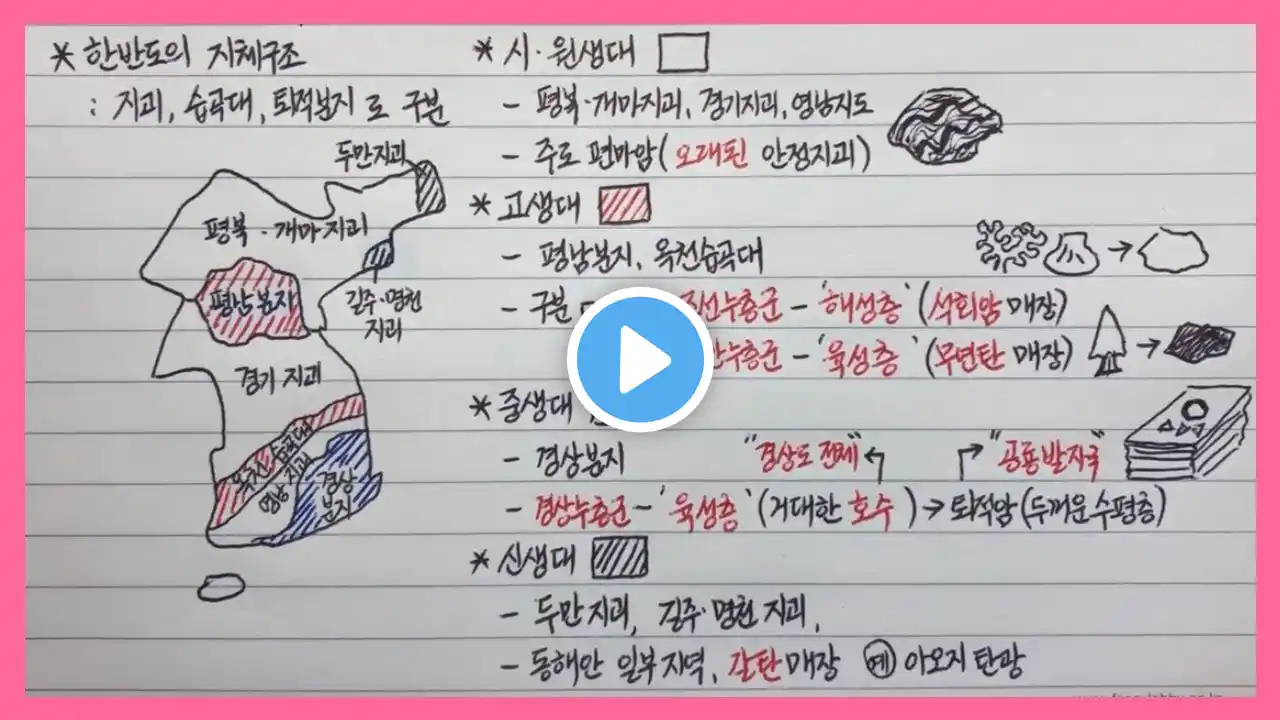 * 한반도의 지체구조
: 지괴, 습곡대, 퇴적분지 로 구분
두만지괴
평북·개마지괴
평남분지
길주·명천
지괴
경기 지괴
옥천 습곡대
영남 지괴
경상
분지
* 시·원생대
- 평북·개마지괴, 경기지괴, 영남지도
- 주로 편마암(오래된 안정지괴)
* 고생대
- 평남분지, 옥천습곡대
- 구분 선누층군 - '해성층' (석회암 매장)
안누층군 - '육성층' (무연탄 매장)
* 중생대
- 경상분지 "경상도 전체" "공룡발자국"
- 경상누층군 - '육성층' (거대한 호수) → 퇴적암(두꺼운 수평층)
* 신생대
- 두만지괴, 길주·명천 지괴,
- 동해안 일부 지역, 갈탄 매장 예 아오지 탄광